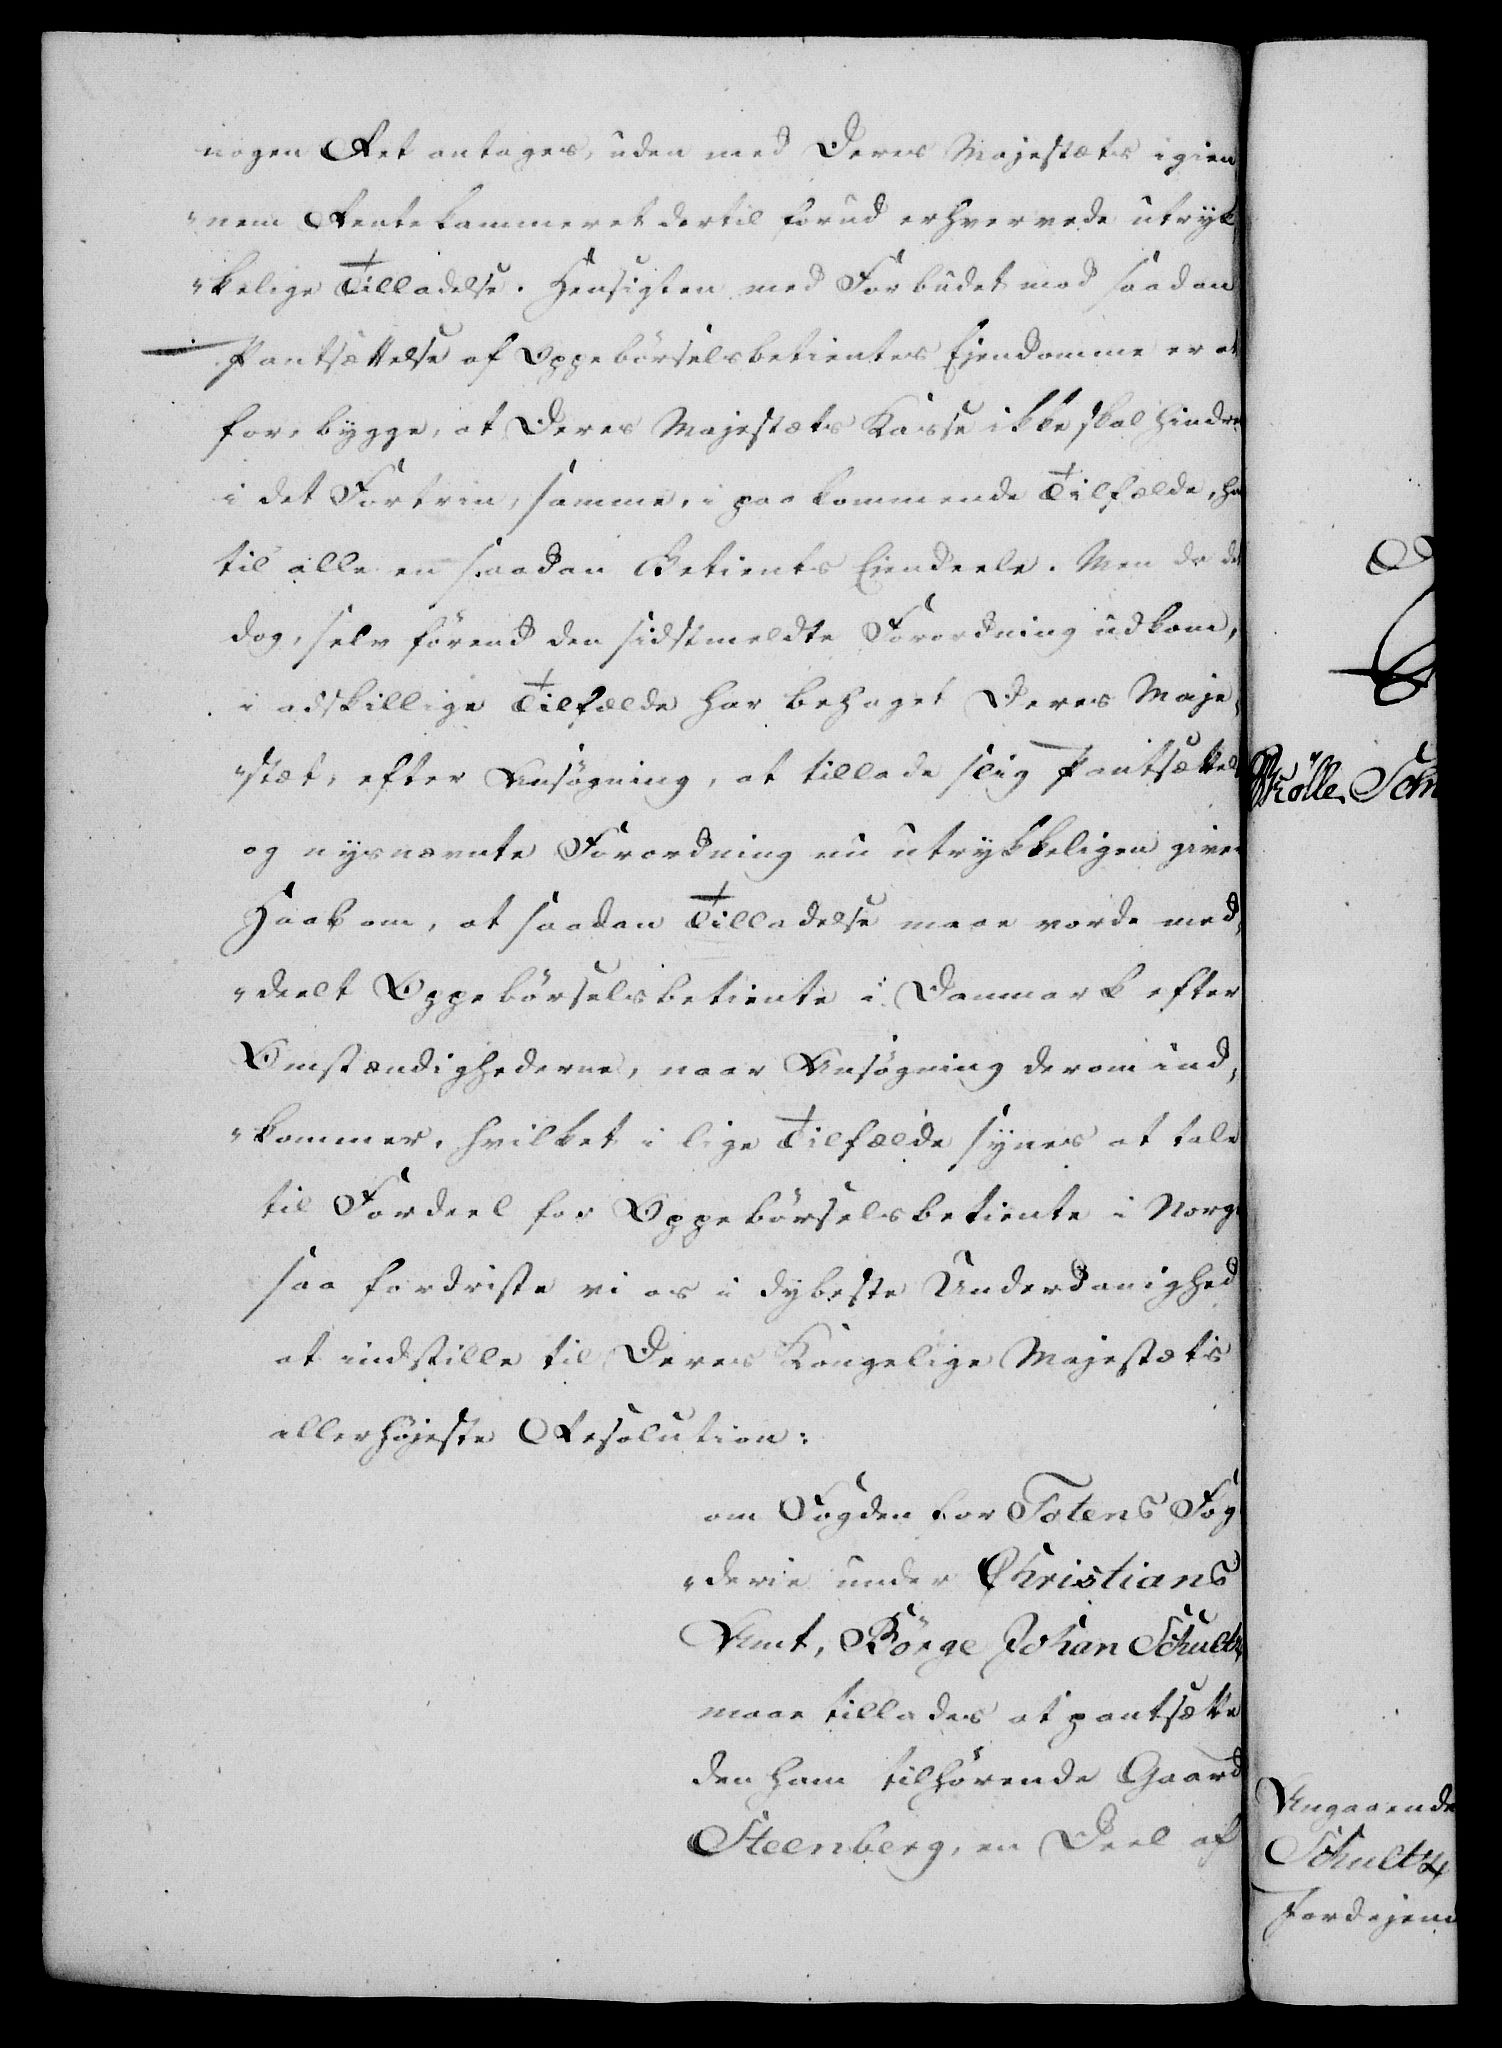 nogen Ret antages, uden med Deres Majestæts igien
"nem Rentekammeret dertil forud erhvervede utryk
"kelige Tilladelse. Hensigten med Forbudet mod saadan
Pantsættelse af Oppebörselsbetientes Ejendomme er at
forebygge, at Deres Majestæts Kasse ikke skal hindre
i det Fortrin, samme, i paakommende Tilfælde, ha
til alle en saadan Betients Eiendeele. Men da de
dog, selv förend den sidstmeldte Forordning udkom,
i adskillige Tilfælde har behaget Deres Maje,
"stæt, efter Ansögning, at tillade slig Pantsættel
og nysnævnte Forordning nu utrykkeligen giver
Haab om, at saadan Tilladelse maae vorde med,
"deelt Oppebörselsbetiente i Danmark efter
Omstændighederne, naar Ansögning derom ind,
"kommer, hvilket i lige Tilfælde synes at tale
til Fordeel for Oppebörselsbetiente i Norge
saa fordriste vi os i dybeste Underdanighed
at indstille til Deres Kongelige Majestæts
allerhöjeste Resolution:
om Fogden for Totens Fog
"derie under Christians
Amt, Börge Johan Schultz
maae tillades at pantsætte
den ham tilhörende Gaard
Steenberg, en Deel af
Angaaende
Schultz